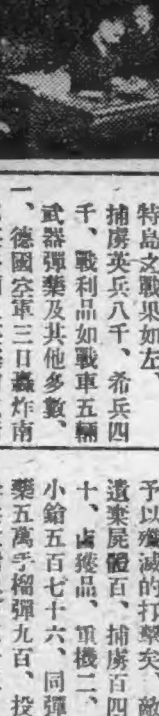 特島之戰果如左、
捕虜英兵八千、希兵四
千、戰利品如戰車五輛
武器彈藥及其他多數、
一、德國空軍三日轟炸南
予以殲滅的打擊矣、敵
遺棄屍體百、捕虜百四
十、鹵獲品、重機二、
小鎗五百七十六、同彈
藥五萬手榴彈九百、投